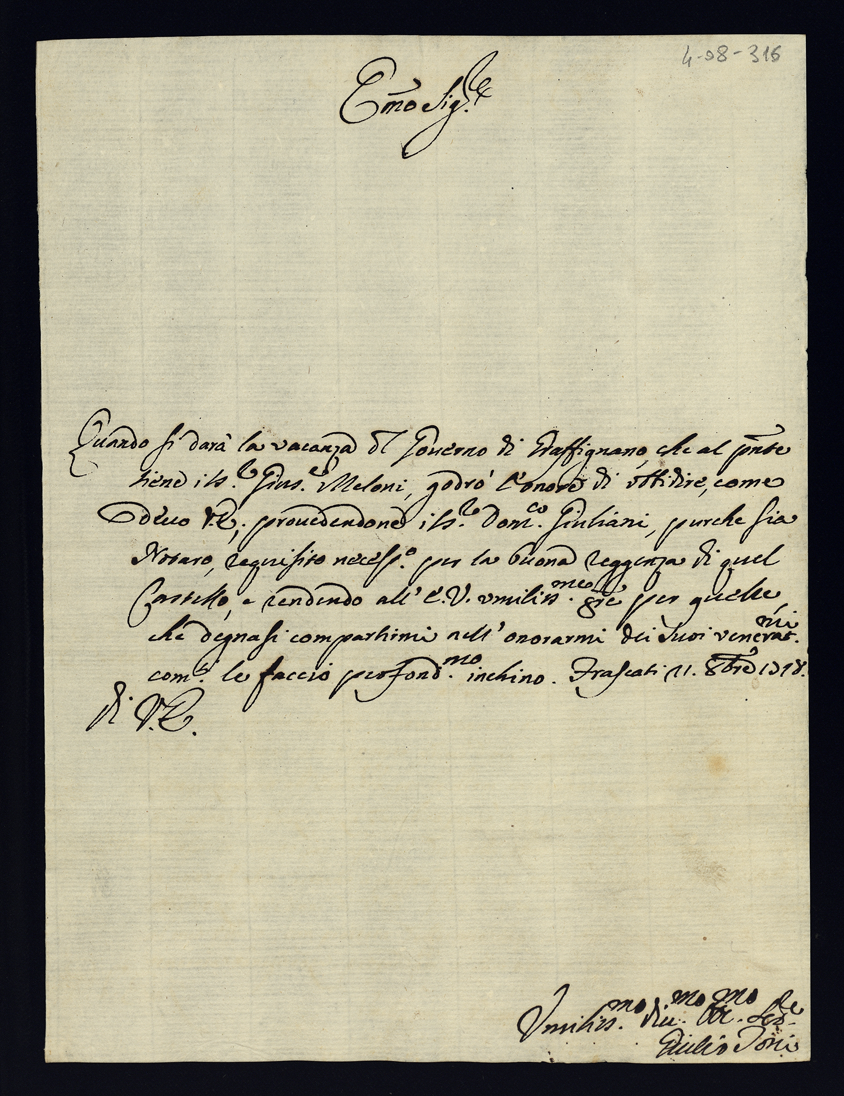 4-08-316
Em̃o Sig.re
Quando si darà la vacanza dl Governo di Graffignano, che al pñte
tiene il S.re Gius.e Meloni, godrò l'onore di obbidire, come
devo V.E., provedendone il S.re Dom.co Giuliani, purche sia
Notaro, requisito necess.o per la buona reggenza di quel
Castello, e rendendo all'E.V. umiliss.me gr̃ẽ per quelle,
che degnasi compartirmi nell'onorarmi dei suoi venerat.mi
com.i le faccio profond.mo inchino. Frascati 11. 8bre 1718.
di V.E.
Umiliss.mo div.mo obl.mo Ser.re
Giulio